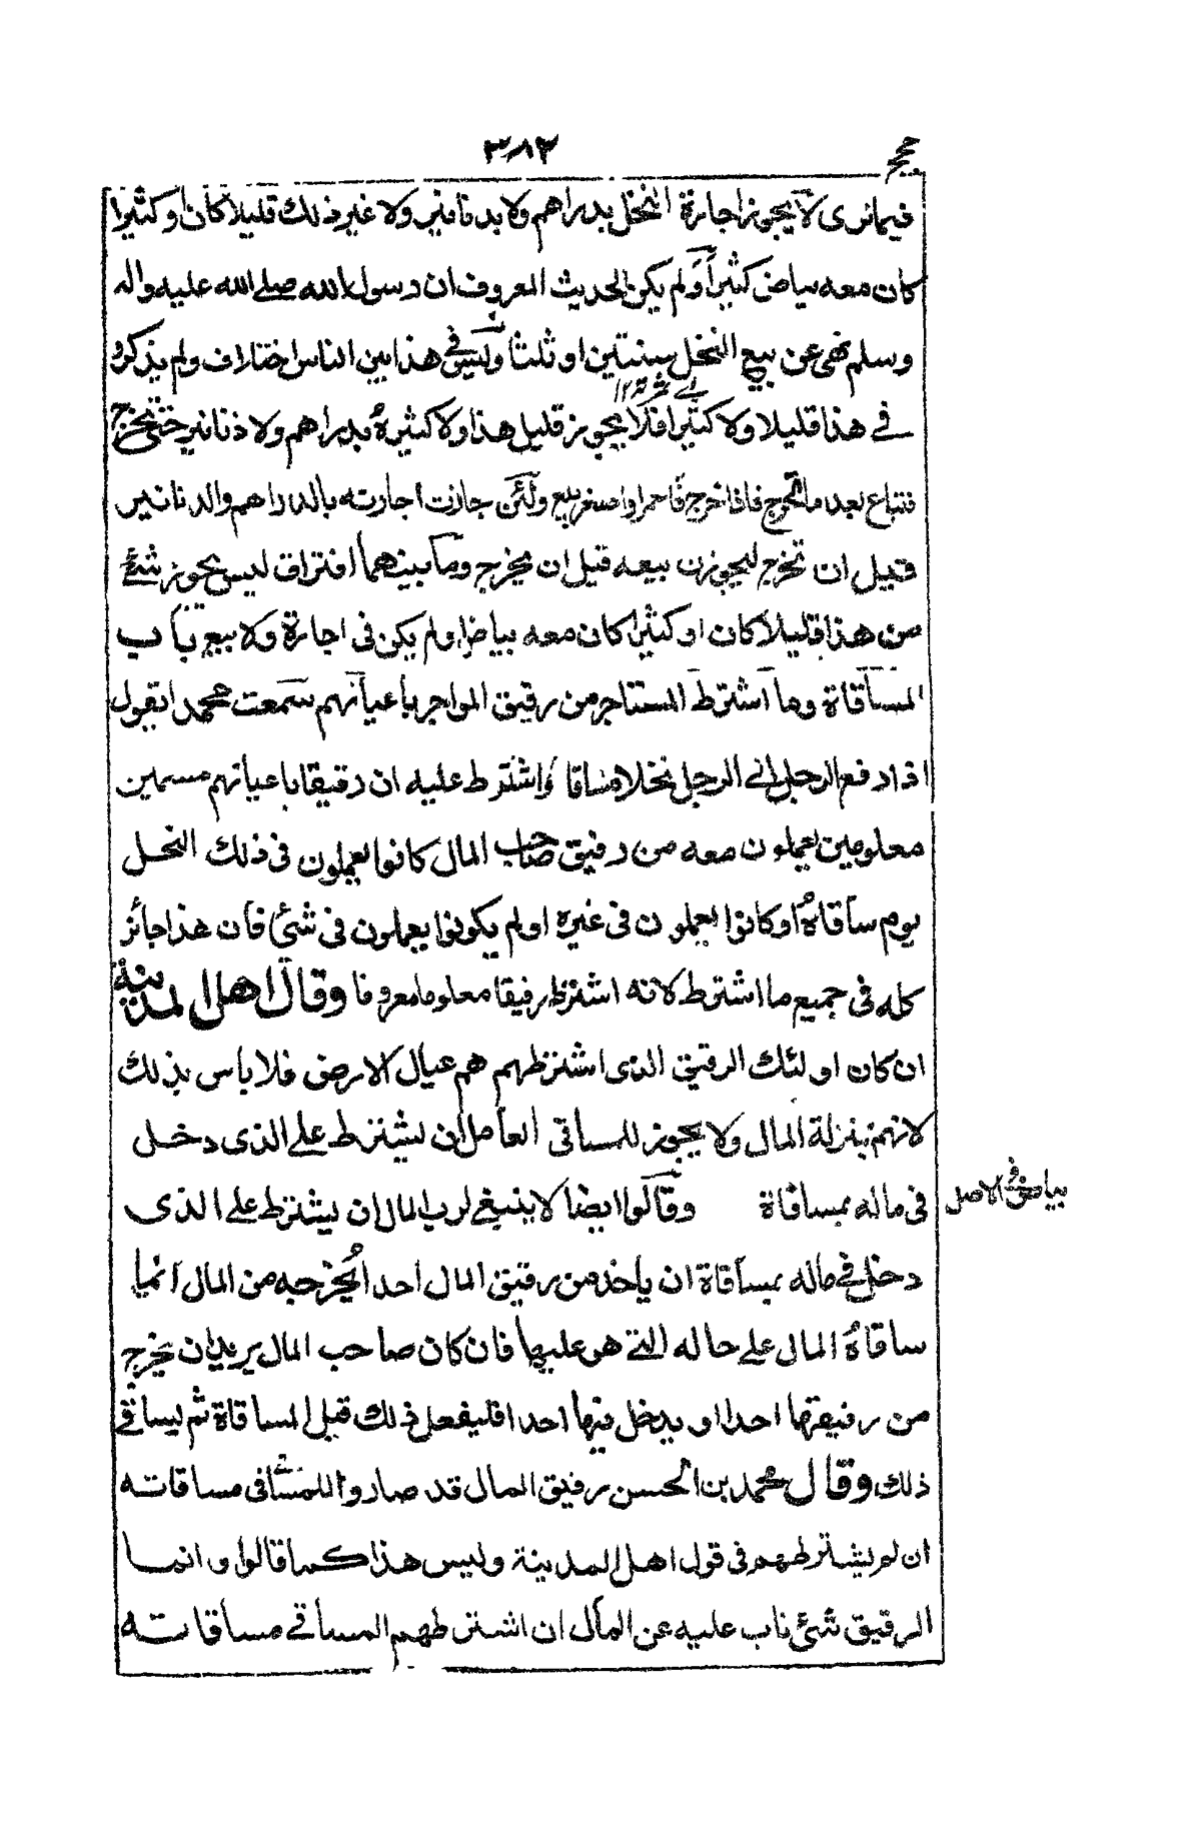 حجج
٣٨٣
فيمانرى لا يجوز اجارة النخل بدراهم ولا بدنانير ولا غير ذلك قليلا كان او كثيرا
كان معه بياض كثيرا ولم يكن الحديث المعروف ان رسول الله صلى الله عليه واله
وسلم نهى عن بيع النخل سنتين او ثلثا وليس في هذا بين الناس اختلاف ولم يذكروا
في هذا قليلا ولا كثيرا فلا يجوز قليل هذا ولا كثيره بدراهم ولا دنانير حتى تخرج
فتباع بعد ما تخرج فاذا اخرج فاحمر او اصفر بيع ولئن جازت اجارته بالدراهم والدنانير
قبل ان تخرج ليجوزن بيعه قبل ان يخرج وما بينهما افتراق ليس يجوز شئ
من هذا قليلا كان او كثيرا كان معه بياض او لم يكن فى اجارة ولا بيع باب
المساقاة وما اشترط المستاجر من رقيق المواجر باعيانهم سمعت محمدا يقول
اذا دفع الرجل الى الرجل نخلا مساقا واشترط عليه ان رقيقا باعيانهم مسمين
معلومين يعملون معه من رقيق صاحب المال كانوا يعملون فى ذلك النخل
يوم ساقاه او كانوا يعملون فى غيره او لم يكونوا يعملون فى شئ فان هذا جائز
كله فى جميع ما اشترط لانه اشترط رقيقا معلوما معروفا وقال اهل المدينة
ان كان اولئك الرقيق الذى اشترطهم هم عيال الارض فلا باس بذلك
لانهم بمنزلة المال ولا يجوز للمساقى العامل ان يشترط على الذى دخل
فى ماله بمساقاة وقالوا ايضا لا ينبغى لرب المال ان يشترط على الذى
بياض فى الاصل
دخل في ماله بمساقاة ان ياخذ من رقيق المال احدا يخرجه من المال انما
ساقاه المال على حاله التى هو عليها فان كان صاحب المال يريد ان يخرج
من رقيقها احدا او يدخل فيها احدا فليفعل ذلك قبل المساقاة ثم ليساقي
ذلك وقال محمد بن الحسن رقيق المال قد صاروا للمساقى مساقاته
ان لم يشترطهم فى قول اهل المدينة وليس هذا كما قالوا وانما
الرقيق شئ ناب عليه عن المال ان اشترطهم المساقي مساقاته